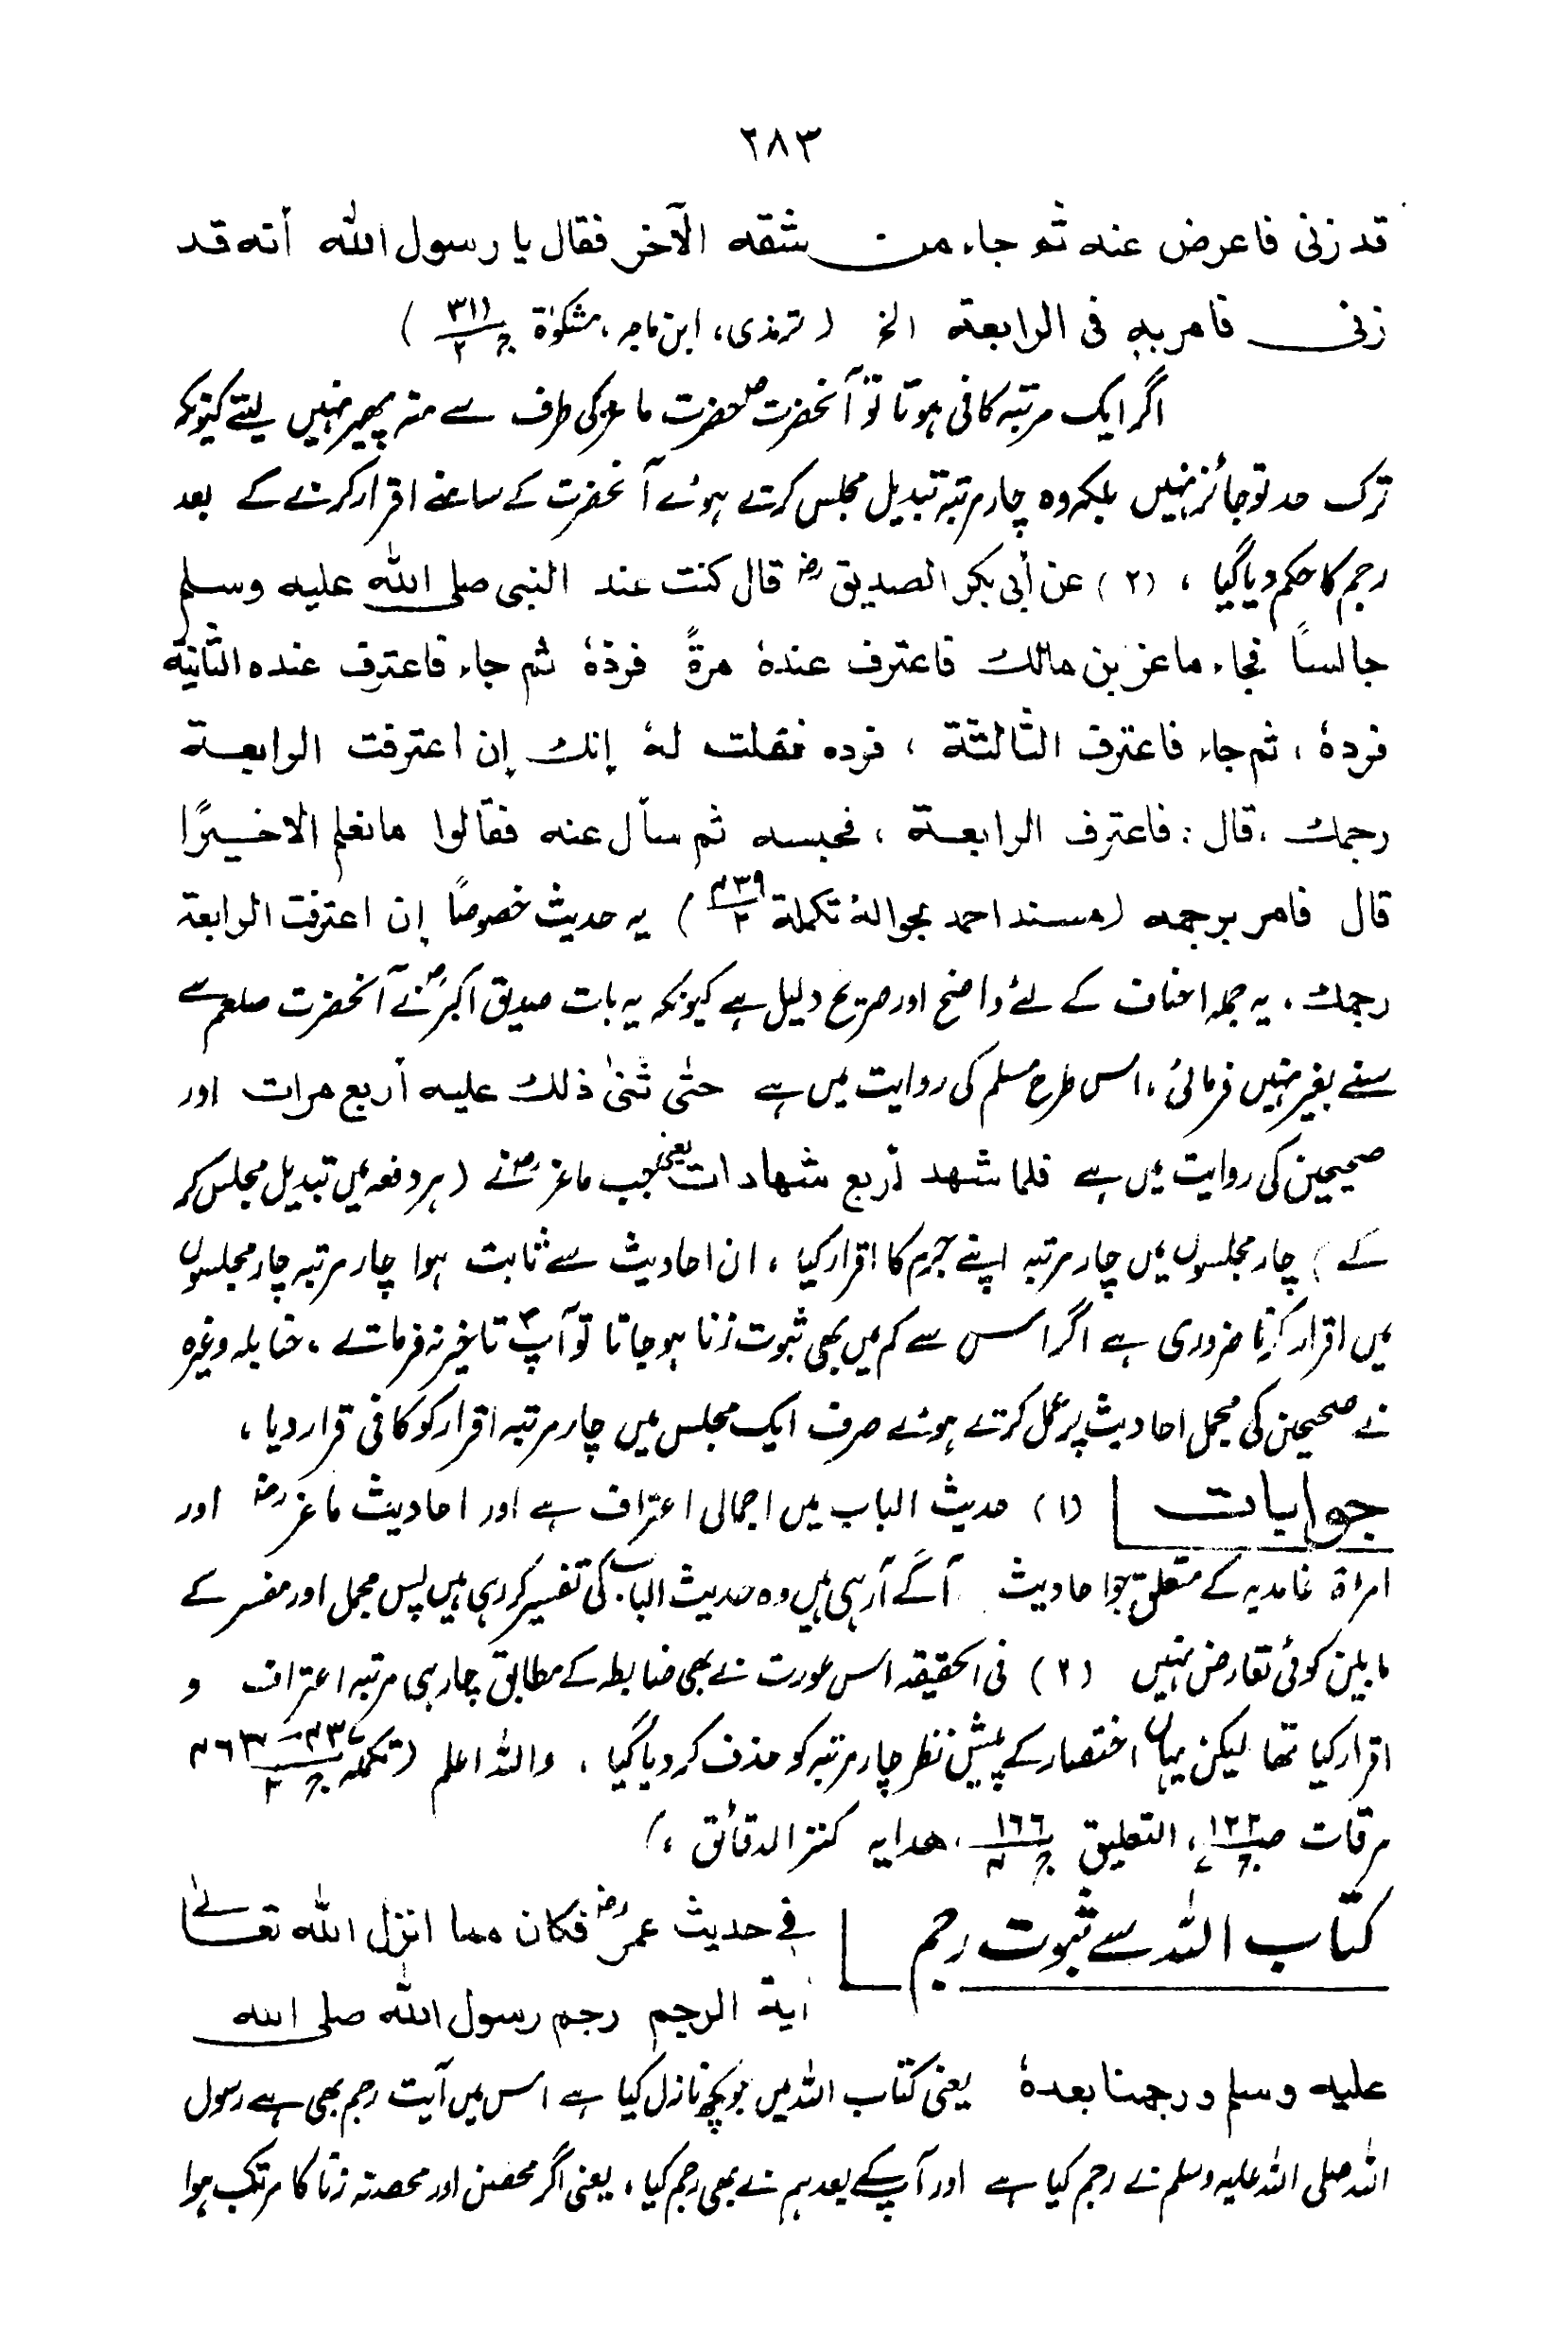 ٢٨٣
قد زنی فاعرض عنه ثم جاء من شقه الآخر فقال یا رسول الله أنه قد
زنی فامر به فی الرابعة الخ (ترمذی، ابن ماجه، مشکوٰة ج۲ ۳۱۱)
اگر ایک مرتبہ کافی ہوتا تو آنحضرتؐ حضرت ماعز کی طرف سے منہ پھیر نہیں لیتے کیونکہ
ترک حد تو جائز نہیں بلکہ وہ چار مرتبہ تبدیل مجلس کرتے ہوئے آنحضرت کے سامنے اقرار کرنے کے بعد
رجم کا حکم دیا گیا ، (۲) عن أبی بکر الصدیق رضؓ قال کنت عند النبی صلی الله علیه وسلم
جالسًا فجاء ماعز بن مالك فاعترف عندہٗ مرةً فردّہٗ ثم جاء فاعترف عندہ الثانیة
فردہٗ ، ثم جاء فاعترف الثالثة ، فردہ فقلت لہٗ إنك إن اعترفت الرابعة
رجمك ، قال : فاعترف الرابعة ، فحبسه ثم سأل عنه فقالوا مانعلم الاخیرًا
قال فامر برجمه (مسند احمد بحوالۂ تکملة ۴۳۹/۲) یہ حدیث خصوصًا إن اعترفت الرابعة
رجمك ، یہ جملہ احناف کے لئے واضح اور صریح دلیل ہے کیونکہ یہ بات صدیق اکبرؓ نے آنحضرت صلعم سے
سنے بغیر نہیں فرمائی ، اس طرح مسلم کی روایت میں ہے حتی ثنیٰ ذلك علیه أربع مرات اور
صحیحین کی روایت میں ہے فلما شهد أربع شهادات یعنی جب ماعزؓ نے (ہر دفعہ میں تبدیل مجلس کر
کے ) چار مجلسوں میں چار مرتبہ اپنے جرم کا اقرار کیا ، ان احادیث سے ثابت ہوا چار مرتبہ چار مجلسوں
میں اقرار کرنا ضروری ہے اگر اس سے کم میں بھی ثبوت زنا ہو جاتا تو آپؐ تاخیر نہ فرماتے ، حنابلہ وغیرہ
نے صحیحین کی مجمل احادیث پر عمل کرتے ہوئے صرف ایک مجلس میں چار مرتبہ اقرار کو کافی قرار دیا ،
جوابات (۱) حدیث الباب میں اجمالی اعتراف ہے اور احادیث ماعز رضؓ اور
امرأۃ غامدیہ کے متعلق جو احادیث آگے آرہی ہیں وہ حدیث الباب کی تفسیر کر رہی ہیں پس مجمل اور مفسر کے
مابین کوئی تعارض نہیں (۲) فی الحقیقہ اس عورت نے بھی ضابطہ کے مطابق چار ہی مرتبہ اعتراف و
اقرار کیا تھا لیکن یہاں اختصار کے پیش نظر چار مرتبہ کو حذف کر دیا گیا ، واللہ اعلم (تکملہ
مرقات صـ۱۲۲ ج۷ ، التعلیق ۱۶۶ ج۴ ، هدایه کنز الدقائق ، )
کتاب اللہ سے ثبوت رجم فی حدیث عمر رضؓ فکان مما انزل الله تعالیٰ
آیة الرجم رجم رسول الله صلی الله
علیه وسلم ورجمنا بعدہٗ یعنی کتاب اللہ میں جو کچھ نازل کیا ہے اس میں آیت رجم بھی ہے رسول
اللہ صلی اللہ علیہ وسلم نے رجم کیا ہے اور آپ کے بعد ہم نے بھی رجم کیا ، یعنی اگر محصن اور محصنہ زنا کا مرتکب ہوا